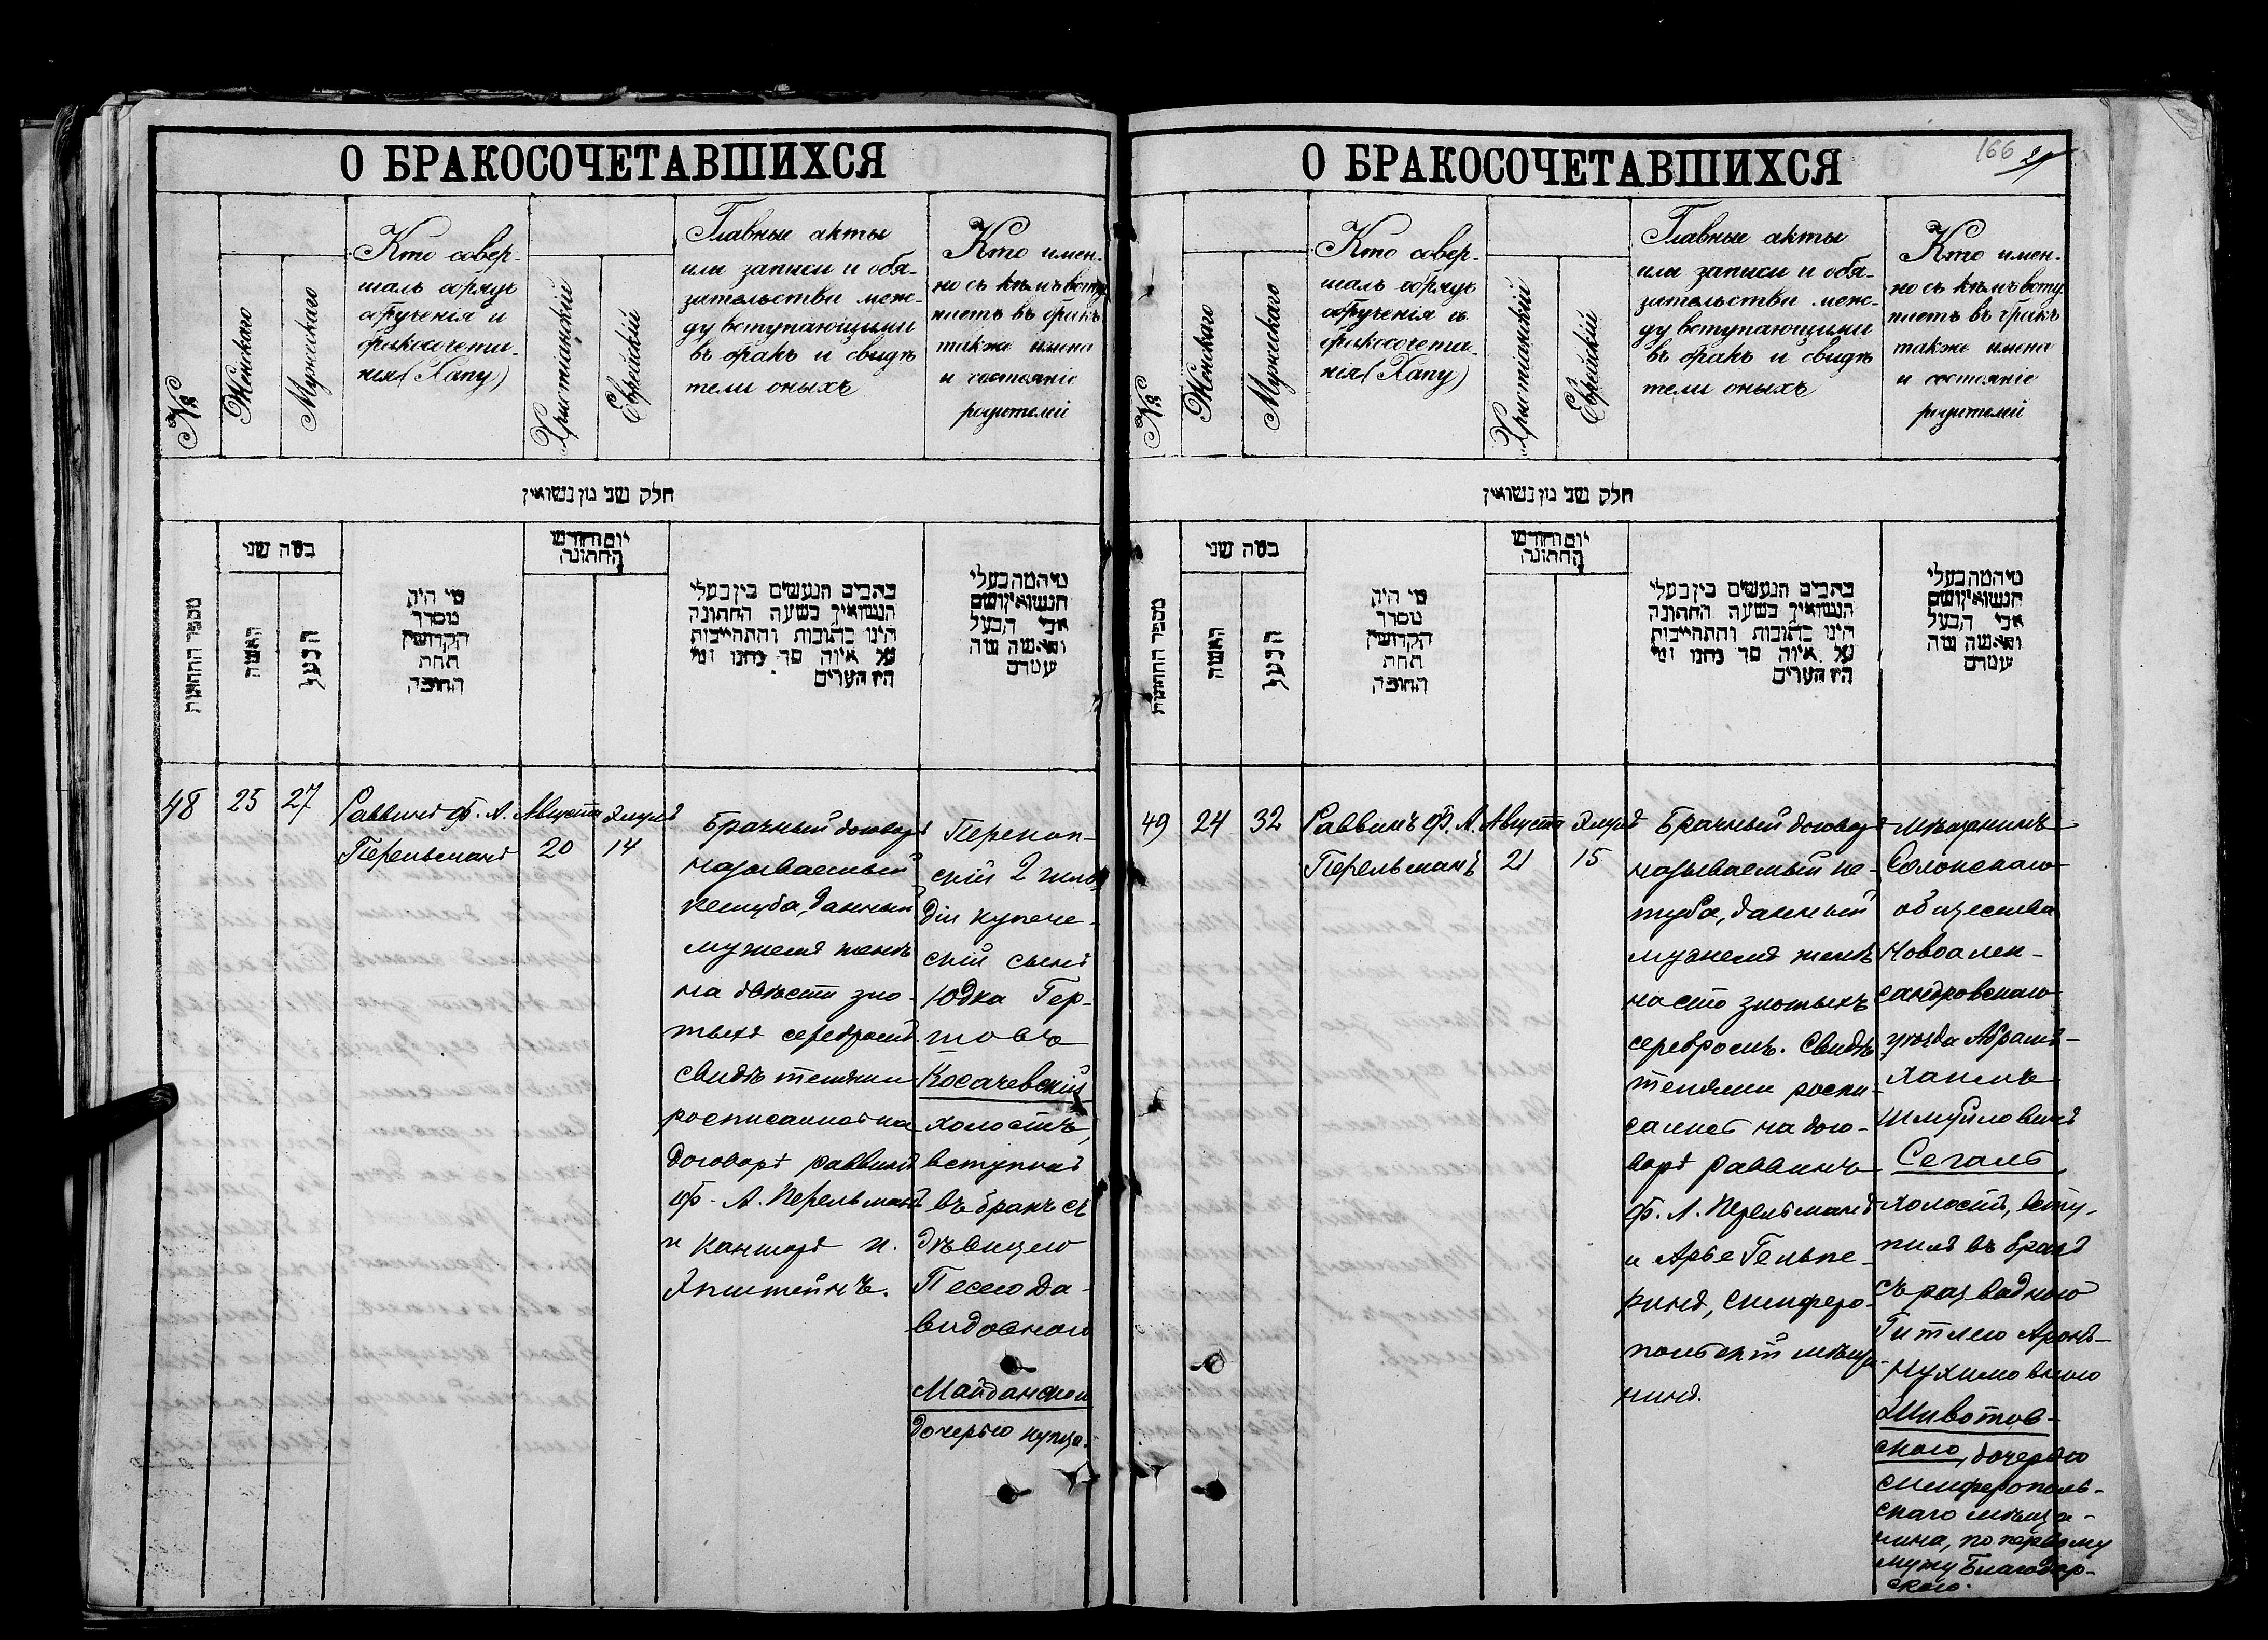 О БРАКОСОЧЕТАВШИХСЯ
№
Женскаго
Мужескаго
Кто совер-
шалъ обрядъ
обрученія и
бракосочета-
нія (Хапу)
Христіанскій
Еврейскій
Главные акты
или записи и обя-
зательства меж-
ду вступающими
въ бракъ и свидѣ
тели оныхъ
Кто имен-
но съ кѣмъ всту
паетъ въ бракъ
также имена
и состояніе
родителей
חלק שני מן נשואין
מספר החתונות
במה שני
האשה
הבעל
מי היה
מסדר
הקדושין
תחת
החופה
יום וחודש
החתונה
כתבים הנעשים בין בעלי
הנשואין בשעה החתונה
היינו כתובות והתחייבות
על איזה סך נתנו ומי
היו העדים
מי המה בעלי
הנשואין ושם
אבי הבעל
והאשה מה
עמדם
48
25
27
Раввинъ Ф. Л.
Перельманъ
Августа
20
Элулъ
14
Брачный договоръ
называемый
кетуба, данный
мужемъ женѣ
на двѣсти зло-
тыхъ серебромъ
свидѣтелями
росписались на
договорѣ раввинъ
Ф. Л. Перельманъ
и Канторъ И.
Эпштейнъ.
Перекоп-
скій 2 гиль
діи купече-
скій сынъ
Юдка Гер-
шовъ
Косачевскій
холостъ,
вступилъ
въ бракъ съ
дѣвицею
Песею Да-
видовною
Майданскою
дочерью купца.
О БРАКОСОЧЕТАВШИХСЯ
166
№
Женскаго
Мужескаго
Кто совер-
шалъ обрядъ
обрученія и
бракосочета-
нія (Хапу)
Христіанскій
Еврейскій
Главные акты
или записи и обя-
зательства меж-
ду вступающими
въ бракъ и свидѣ
тели оныхъ
Кто имен-
но съ кѣмъ всту
паетъ въ бракъ
также имена
и состояніе
родителей
חלק שני מן נשואין
מספר החתונות
במה שני
האשה
הבעל
מי היה
מסדר
הקדושין
תחת
החופה
יום וחודש
החתונה
כתבים הנעשים בין בעלי
הנשואין בשעה החתונה
היינו כתובות והתחייבות
על איזה סך נתנו ומי
היו העדים
מי המה בעלי
הנשואין ושם
אבי הבעל
והאשה מה
עמדם
49
24
32
Раввинъ Ф. Л.
Перельманъ
Августа
21
Элулъ
15
Брачный договоръ
называемый ке-
туба, данный
мужемъ женѣ
на сто злотыхъ
серебромъ. Свидѣ
телями роспи-
сались на дого-
ворѣ раввинъ
Ф. Л. Перельманъ
и Арье Гельпе-
ринъ, симферо-
польскій мѣща-
нинъ.
Мѣщанинъ
Солокскаго
общества
Новоалек-
сандровскаго
уѣзда Абрамъ-
Хаимъ
Шмуйловичъ
Сегаль
холостъ, всту-
пилъ въ бракъ
съ разводною
Гитлею Аронъ-
Нухимовною
Животов-
скою, дочерью
симферополь-
скаго мѣща-
нина, по первому
мужу Благодар-
скою.